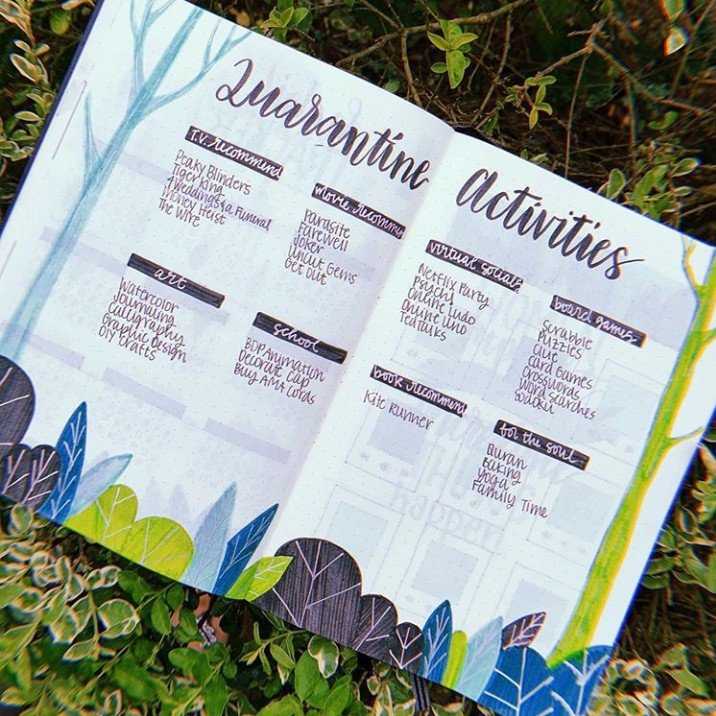 Quarantine Activities
T.V. recommend
Peaky Blinders
Tiger King
4 Weddings & a Funeral
Money Heist
The Wire
Movie Recomm
Parasite
Farewell
Joker
Uncut Gems
Get Out
art
Watercolor
Journaling
Calligraphy
Graphic Design
DIY Crafts
school
BDP Animation
Decorate Cap
Buy AMA Cords
virtual socials
Netflix Party
Psych!
Online Ludo
Online Uno
Ted Talks
board games
Scrabble
Puzzles
Clue
Card Games
Crosswords
Word Searches
Sodoku
book recommend
Kite Runner
for the soul
Quran
Baking
Yoga
Family Time